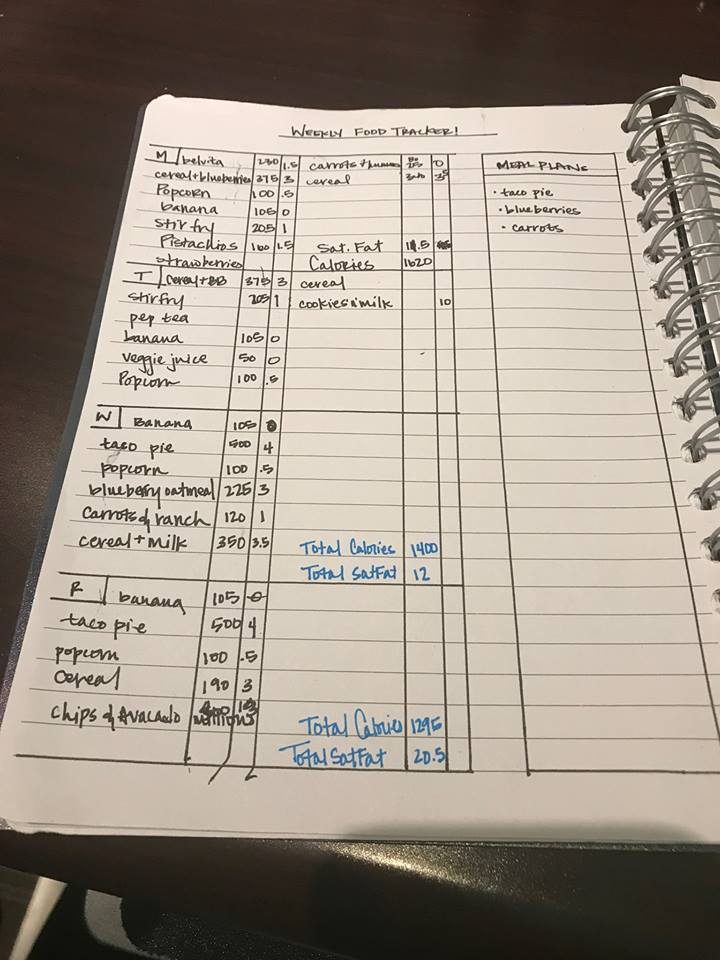 WEEKLY FOOD TRACKER!
M belvita 230 1.5 carrots + 0
cereal + blueberries 375 3 cereal
Popcorn 100 .5
banana 105 0
stir fry 205 1
Pistachios 160 1.5 Sat. Fat 11.5
strawberries Calories 1620
T cereal + BB 375 3 cereal
stir fry 205 1 cookies n' milk 10
pep tea
banana 105 0
veggie juice 50 0
Popcorn 100 .5
W Banana 105 0
taco pie 500 4
popcorn 100 .5
blueberry oatmeal 225 3
carrots & ranch 120 1
cereal + milk 350 3.5 Total Calories 1400
Total SatFat 12
R banana 105 0
taco pie 500 4
popcorn 100 .5
cereal 190 3
chips & Avacado millions Total Calories 1295
Total SatFat 20.5
MEAL PLANS
• taco pie
• blueberries
• carrots